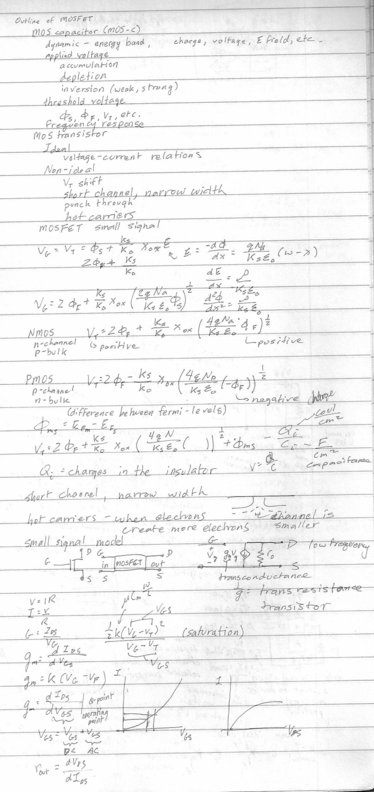 Outline of MOSFET
MOS capacitor (MOS-C)
dynamic - energy band, charge, voltage, E field, etc.
Applied voltage
accumulation
depletion
inversion (weak, strong)
threshold voltage
Φs, ΦF, VT, etc.
Frequency response
MOS transistor
Ideal
voltage-current relations
Non-ideal
VT shift
short channel, narrow width
punch through
hot carriers
MOSFET small signal
VG = VT = Φs + Ks/Ko Xox E
2ΦF + Ks/Ko
E = -dΦ/dx = qNA/KsEo (W-x)
dE/dx = ρ/KsEo
VG = 2ΦF + Ks/Ko Xox (2qNA/KsEo Φs)^1/2
d²Φ/dx² = ρ/KsEo
NMOS VT = 2ΦF + Ks/Ko Xox (4qNA/KsEo ΦF)^1/2
n-channel positive positive
p-bulk
PMOS VT = 2ΦF - Ks/Ko Xox (4qND/KsEo (-ΦF))^1/2
p-channel negative
n-bulk
(difference between fermi-levels)
Φms = EFm - EFs
charge
coul/cm²
VT = 2ΦF + Ks/Ko Xox (4qN/KsEo ( ))^1/2 + Φms - Qi/Ci
F/cm²
capacitance
V = Q/C
Qi = charges in the insulator
short channel, narrow width
hot carriers - when electrons create more electrons
channel is smaller
small signal model
G D S
G in MOSFET out D
S S
G Vg gVg ro D low frequency
S
transconductance
g: transresistance
transistor
V = IR
I = V/R
μCox W/L
G = IDS/VG
1/2 k(VG-VT)² (saturation)
VGS
VG-VT
VGS
gm = dIDS/dVGS
gm = k(VG-VP)
g = dIDS/dVGS | Q-point operating point
VGS = VGS + vGS
DC AC
I VGS
I VDS
rout = dVDS/dIDS